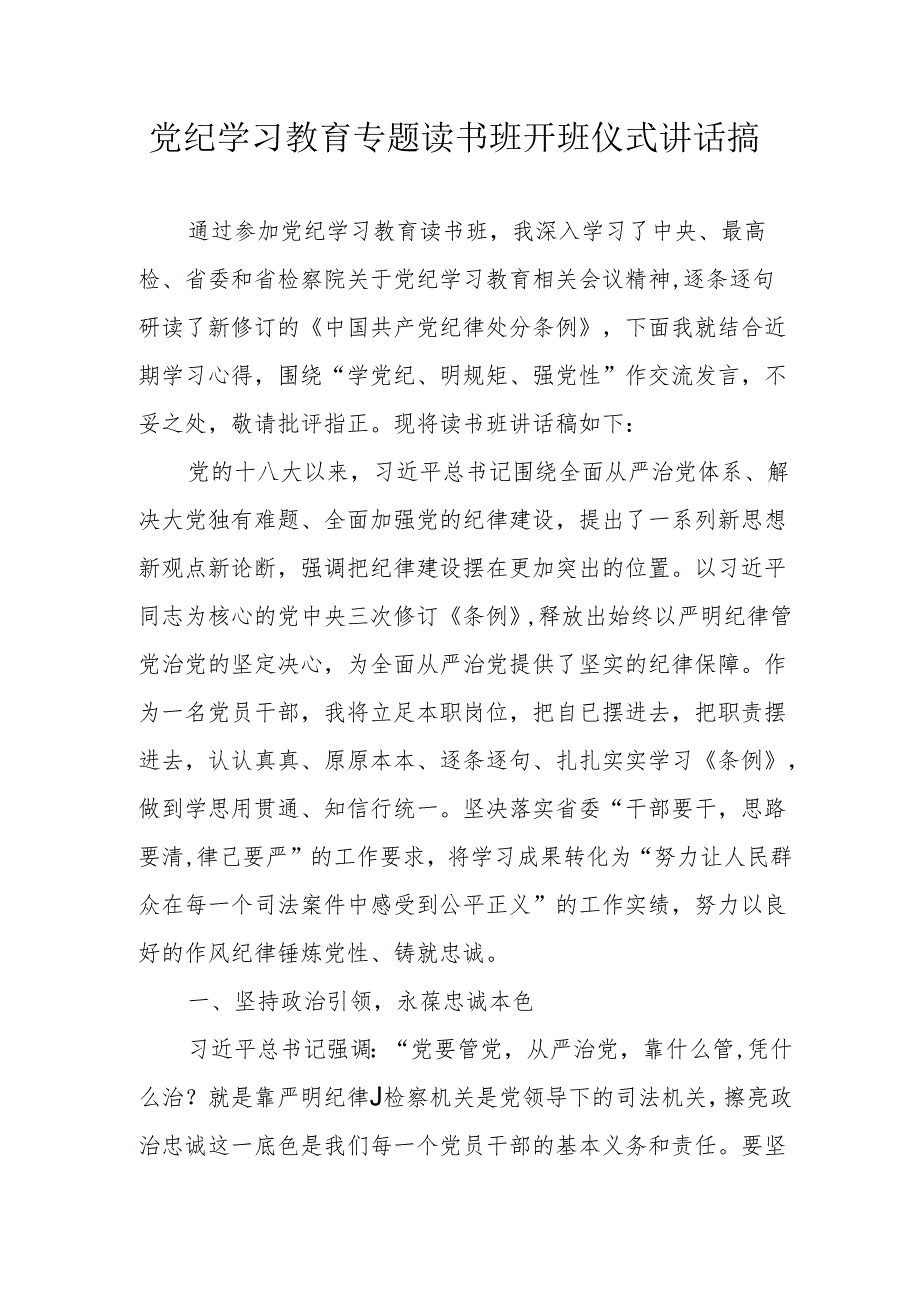 党纪学习教育专题读书班开班仪式讲话搞
通过参加党纪学习教育读书班，我深入学习了中央、最高
检、省委和省检察院关于党纪学习教育相关会议精神,逐条逐句
研读了新修订的《中国共产党纪律处分条例》，下面我就结合近
期学习心得，围绕“学党纪、明规矩、强党性”作交流发言，不
妥之处，敬请批评指正。现将读书班讲话稿如下：
党的十八大以来，习近平总书记围绕全面从严治党体系、解
决大党独有难题、全面加强党的纪律建设，提出了一系列新思想
新观点新论断，强调把纪律建设摆在更加突出的位置。以习近平
同志为核心的党中央三次修订《条例》,释放出始终以严明纪律管
党治党的坚定决心，为全面从严治党提供了坚实的纪律保障。作
为一名党员干部，我将立足本职岗位，把自己摆进去，把职责摆
进去，认认真真、原原本本、逐条逐句、扎扎实实学习《条例》，
做到学思用贯通、知信行统一。坚决落实省委“干部要干，思路
要清,律己要严”的工作要求，将学习成果转化为“努力让人民群
众在每一个司法案件中感受到公平正义”的工作实绩，努力以良
好的作风纪律锤炼党性、铸就忠诚。
一、坚持政治引领，永葆忠诚本色
习近平总书记强调：“党要管党，从严治党，靠什么管,凭什
么治？就是靠严明纪律J检察机关是党领导下的司法机关,擦亮政
治忠诚这一底色是我们每一个党员干部的基本义务和责任。要坚